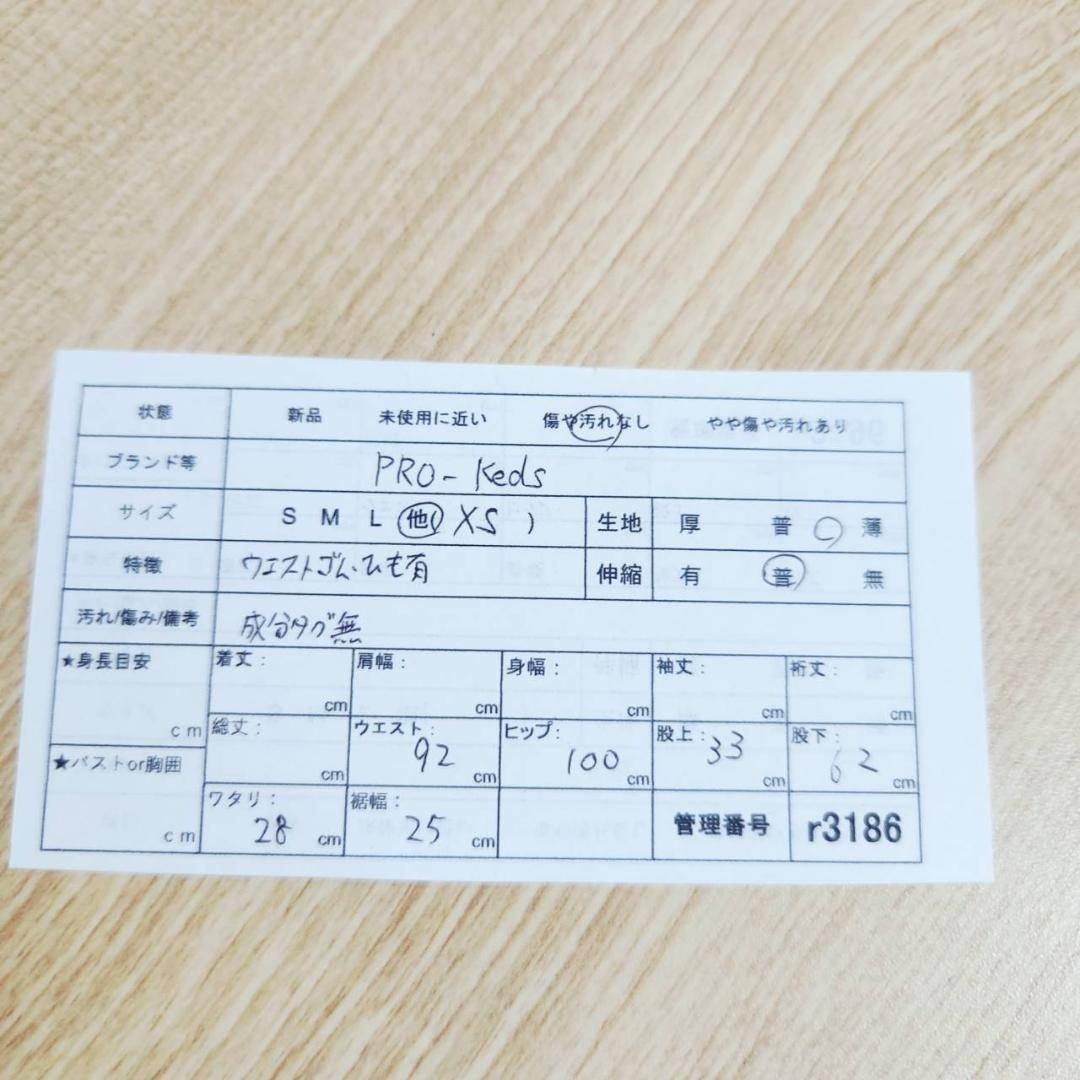 状態 新品 未使用に近い 傷や汚れなし やや傷や汚れあり
ブランド等 PRO-Keds
サイズ S M L 他( XS ) 生地 厚 普 薄
特徴 ウエストゴム・ひも有 伸縮 有 普 無
汚れ/傷み/備考 成分タグ無
★身長目安 cm 着丈: cm 肩幅: cm 身幅: cm 袖丈: cm 裄丈: cm
総丈: cm ウエスト: 92 cm ヒップ: 100 cm 股上: 33 cm 股下: 62 cm
★バストor胸囲 cm ワタリ: 28 cm 裾幅: 25 cm 管理番号 r3186